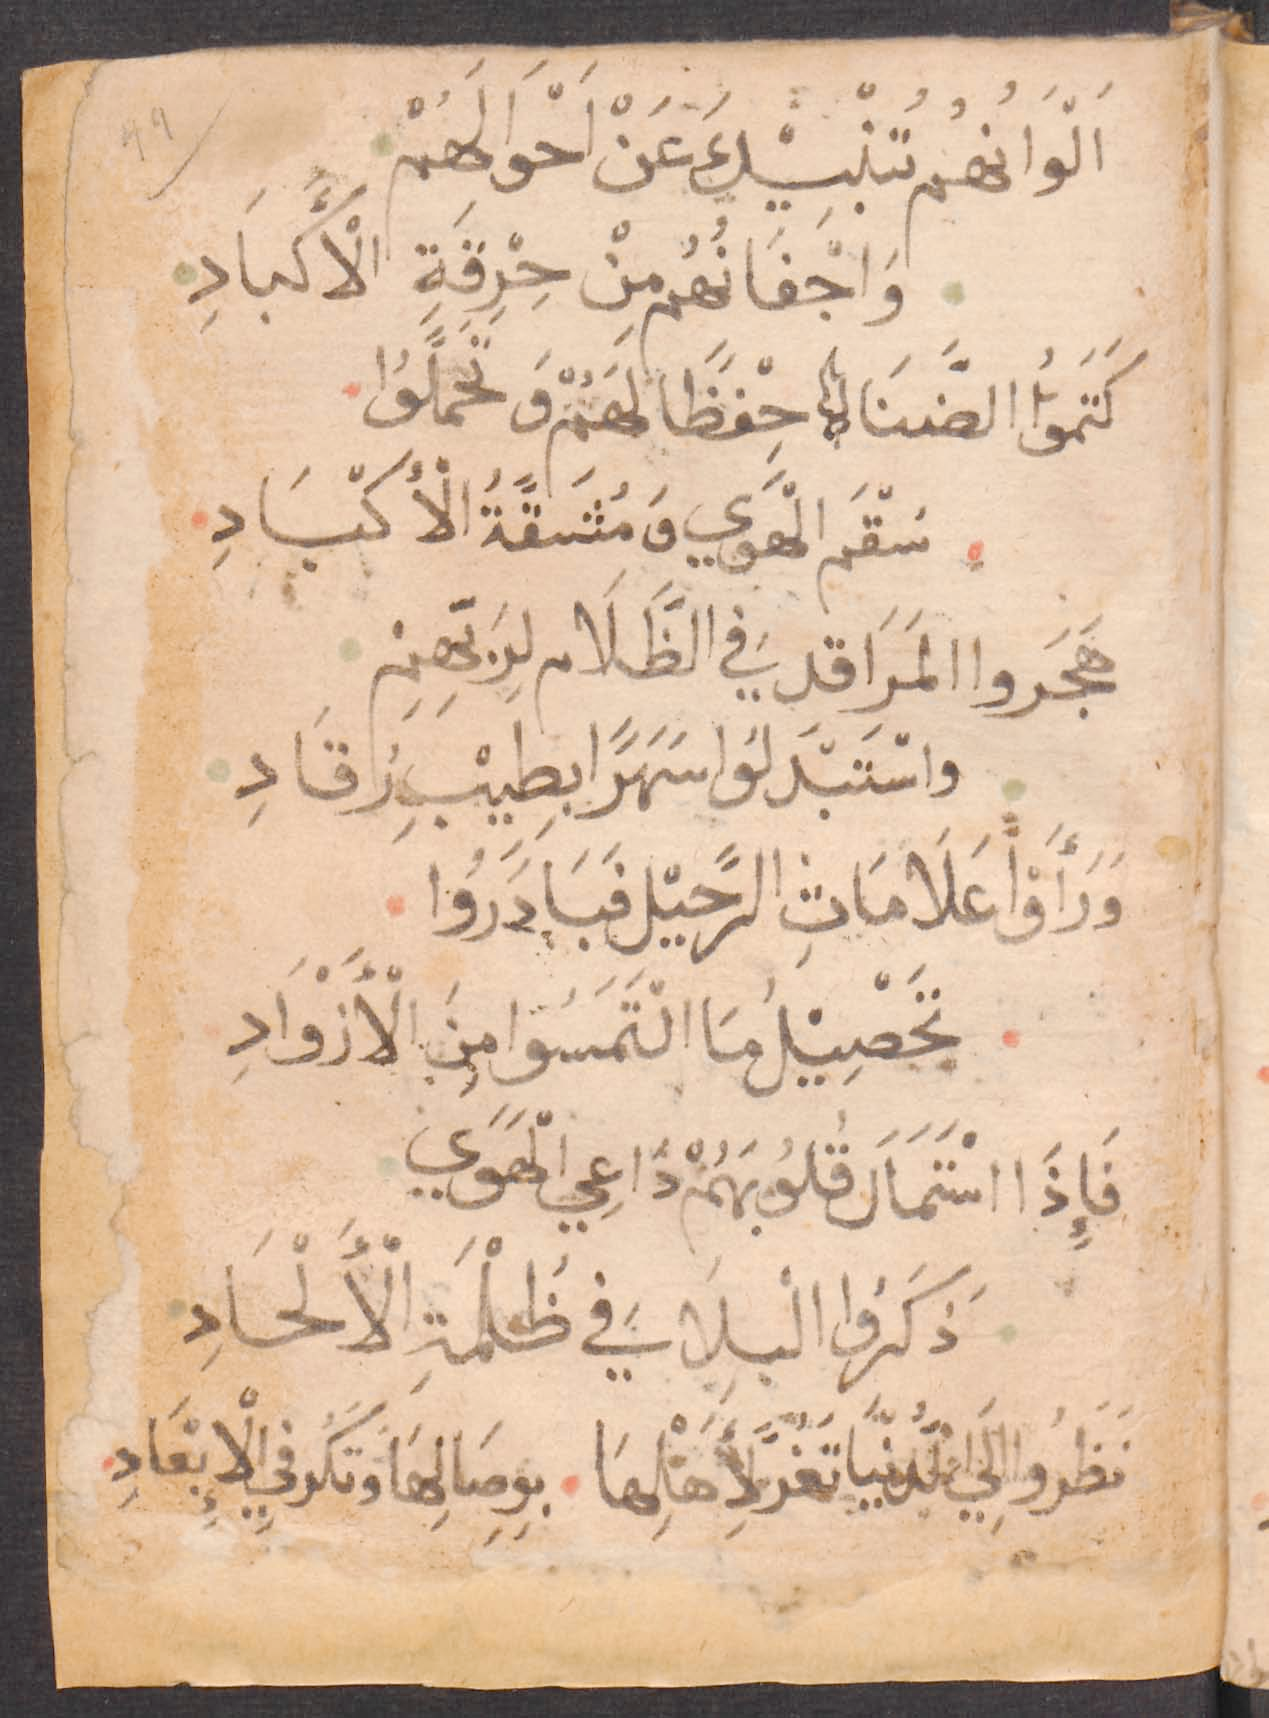 ٩٩
اَلْوَانُهُم تُنْبِيْكَ عَنْ اَحْوَالِهِمْ
وَاَجْفَانُهُم مِنْ حِرْقَةِ الْأَكْبَادِ
كَتَمُوا الضَّنَا حِفْظًا لَهُمْ وَتَحَمَّلُوا
سَقْمَ الْهَوَي وَمُشَقَّةُ الْأَكْبَادِ
هَجَروا المَرَاقد فِي الظَّلَام لِرَبِّهِم
واسْتَبْدَلُوا سَهَرًا بِطِيْبِ رُقَادِ
وَرَأَوْا عَلَامَاتِ الرَّحِيْل فَبَادَرُوا
تَحْصِيْلُ مَا الْتَمَسُوا مِنَ الْأَزْوَادِ
فَإِذَا اسْتَمَالَ قُلُوبَهُمْ دَاعِي الْهَوَي
ذَكَرُوا الْبِلَا فِي ظُلْمَةِ الْأَلْحَادِ
نَظَرُوا إِلَي الدُّنْيَا تَغُرُّ لِأَهْلِهَا بِوِصَالِهَا وَتَكُر فِي الْإِبْعَادِ